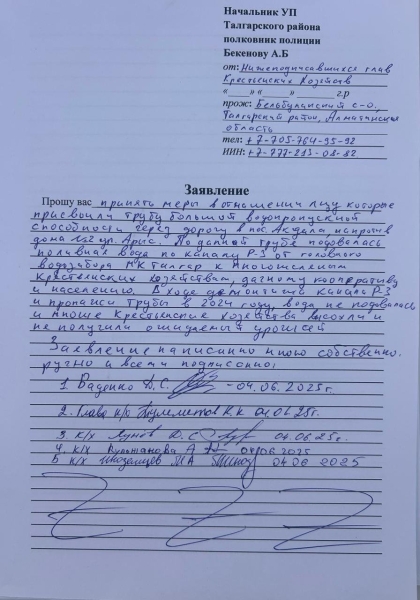 Начальник УП
Талгарского района
полковник полиции
Бекенову А.Б
от: Нижеподписавшихся глав
Крестьянских Хозяйств
«____» «_____» _______ г.р
прож: Бельбулакский с-о,
Талгарский район, Алматинская
область
тел: +7-705-764-95-92
ИИН: +7-777-213-08-82
Заявление
Прошу вас принять меры в отношении лиц, которые
присвоили трубу большой водопропускной
способности через дорогу в пос. Акдала, напротив
дома №2 ул. Арис. По данной трубе подовалась
поливная вода по каналу Р-3 от головного
водозабора МК Талгар к многочисленным
Крестьянских хозяйствам, дачному кооперативу
и населению. В ходе канала Р-3
и пропажи трубы в 2024 году вода не подовалась
и многие Крестьянские Хозяйства высохли и
не получили ожидаемый урожай
Заявление написанно мною собственно-
ручно и всеми подписанно:
1. Ваденко В.С. - 04.06.2025г.
2. Глава к/х К.К 04.06 25г.
3. к/х Лунёв В.С 04.06.25г.
4. к/х Культанова А 04.06.2025
5 к/х М А 04 06 2025